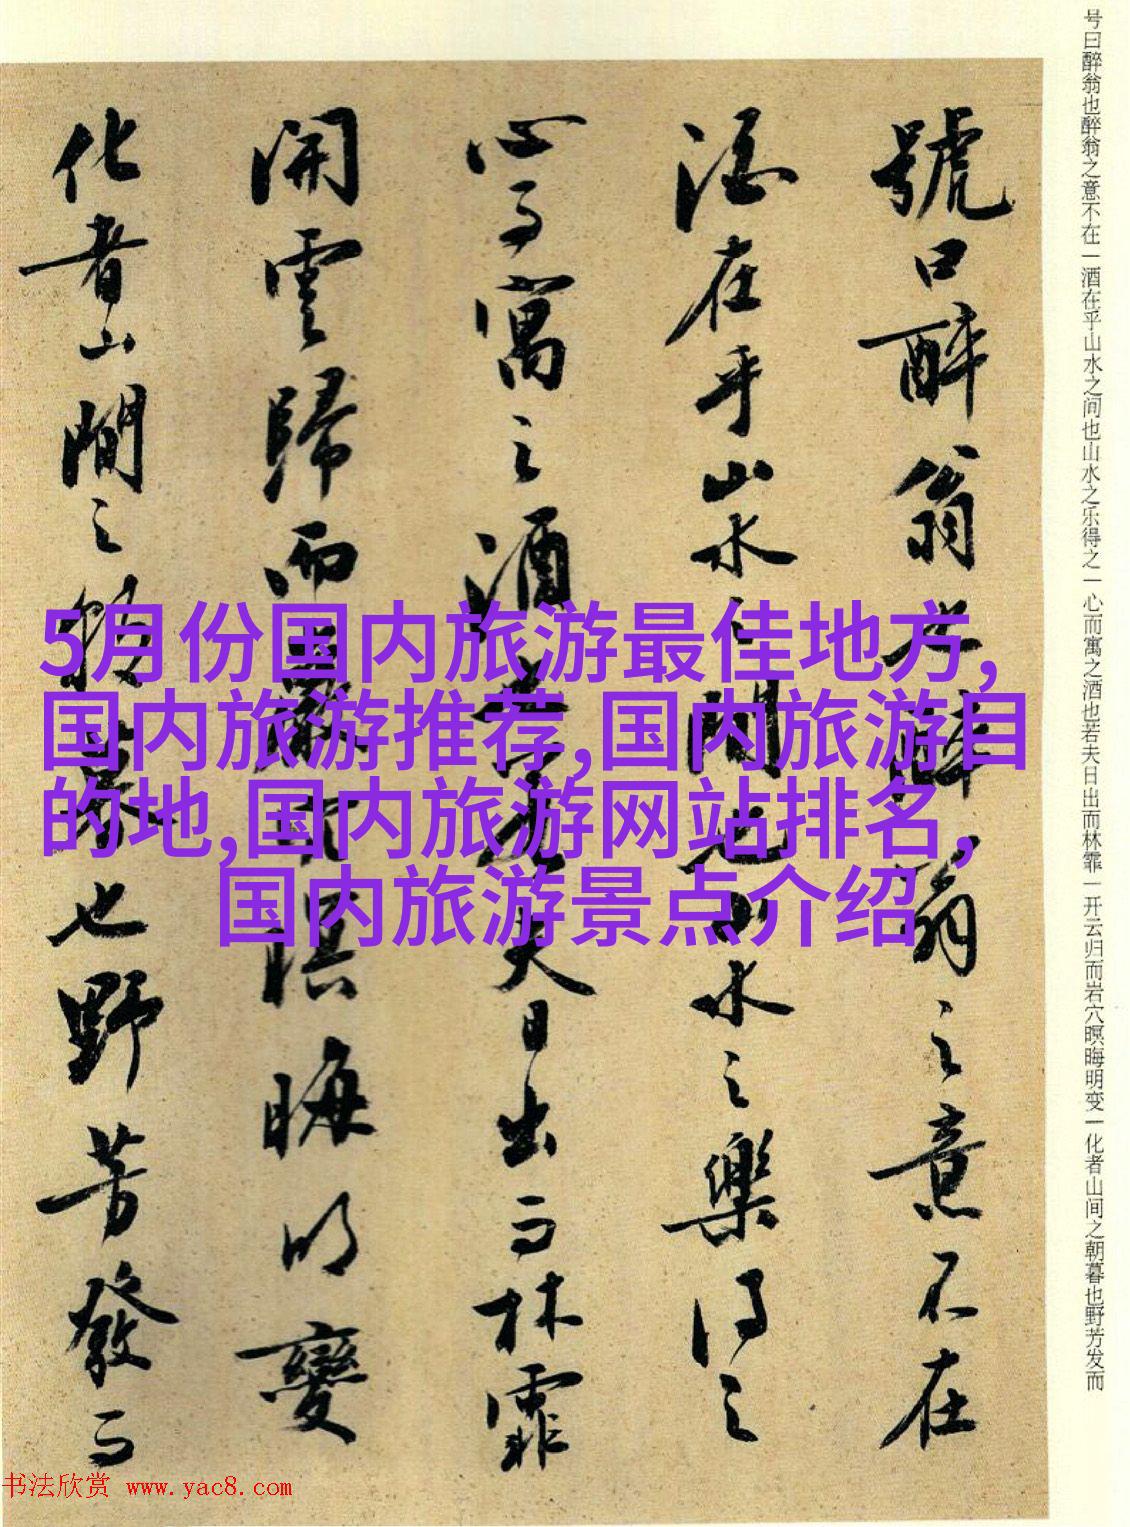 号曰醉翁也醉翁之意不在一酒在乎山水之间也山水之乐得之一心而寓之酒也若夫日出而林霏一开云归而岩穴暝晦明变一化者山间之朝暮也野芳发而
號曰醉翁也醉翁之意不在
酒在乎山水之間也山水之樂得之
心而寓之酒也若夫日出而林霏
開雲歸而巖穴暝晦明變
化者山間之朝暮也野芳發而
5月份国内旅游最佳地方,
国内旅游推荐,国内旅游目
的地,国内旅游网站排名,
国内旅游景点介绍
书法欣赏 www.yac8.com